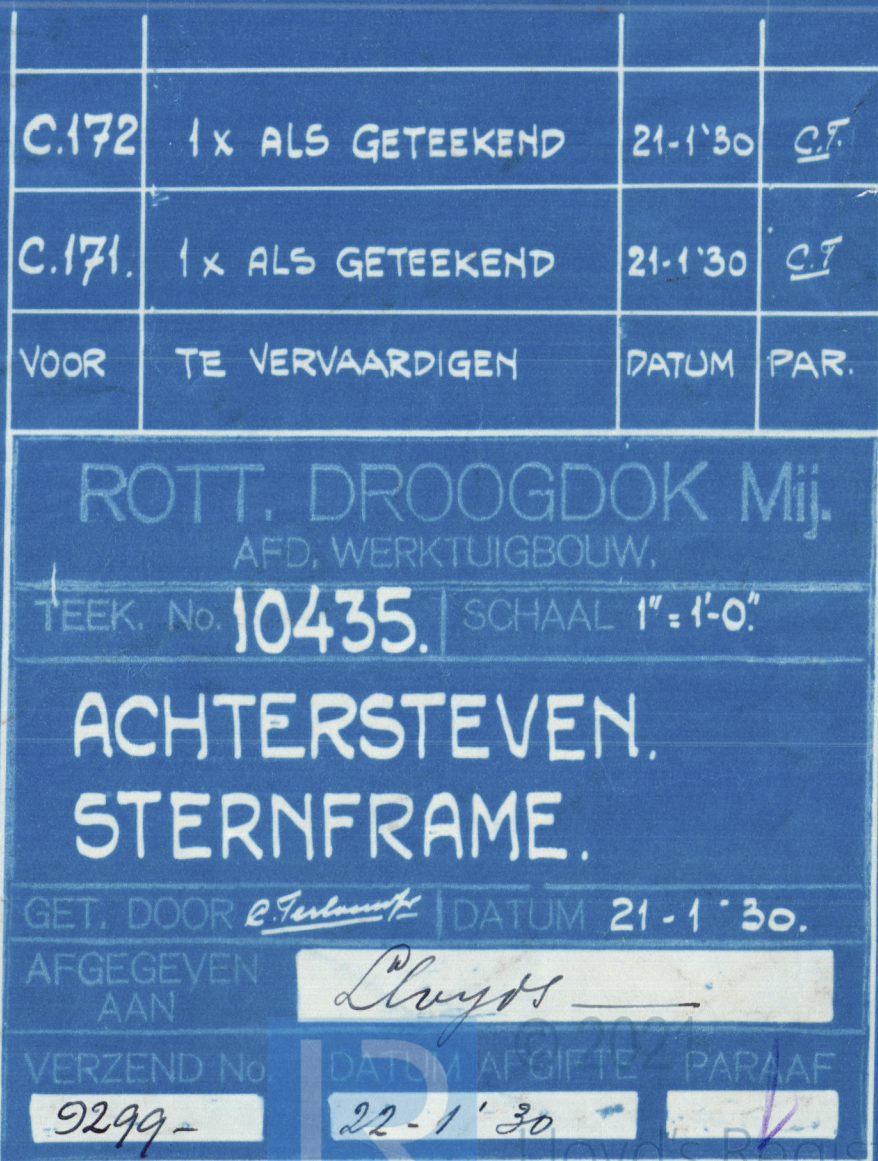 C.172 1 x ALS GETEEKEND 21-1'30 C.T.
C.171. 1 x ALS GETEEKEND 21-1'30 C.T
VOOR TE VERVAARDIGEN DATUM PAR.
ROTT. DROOGDOK Mij.
AFD. WERKTUIGBOUW.
TEEK. No. 10435. SCHAAL 1" = 1'-0".
ACHTERSTEVEN.
STERNFRAME.
GET. DOOR DATUM 21-1'30.
AFGEGEVEN AAN Lloyds
VERZEND No. DATUM AFGIFTE PARAAF
9299- 22-1'30
© 2021
Lloyd's Regist